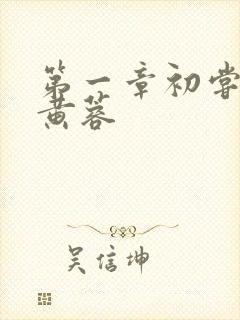 第一章初尝
黄蓉
吴信坤